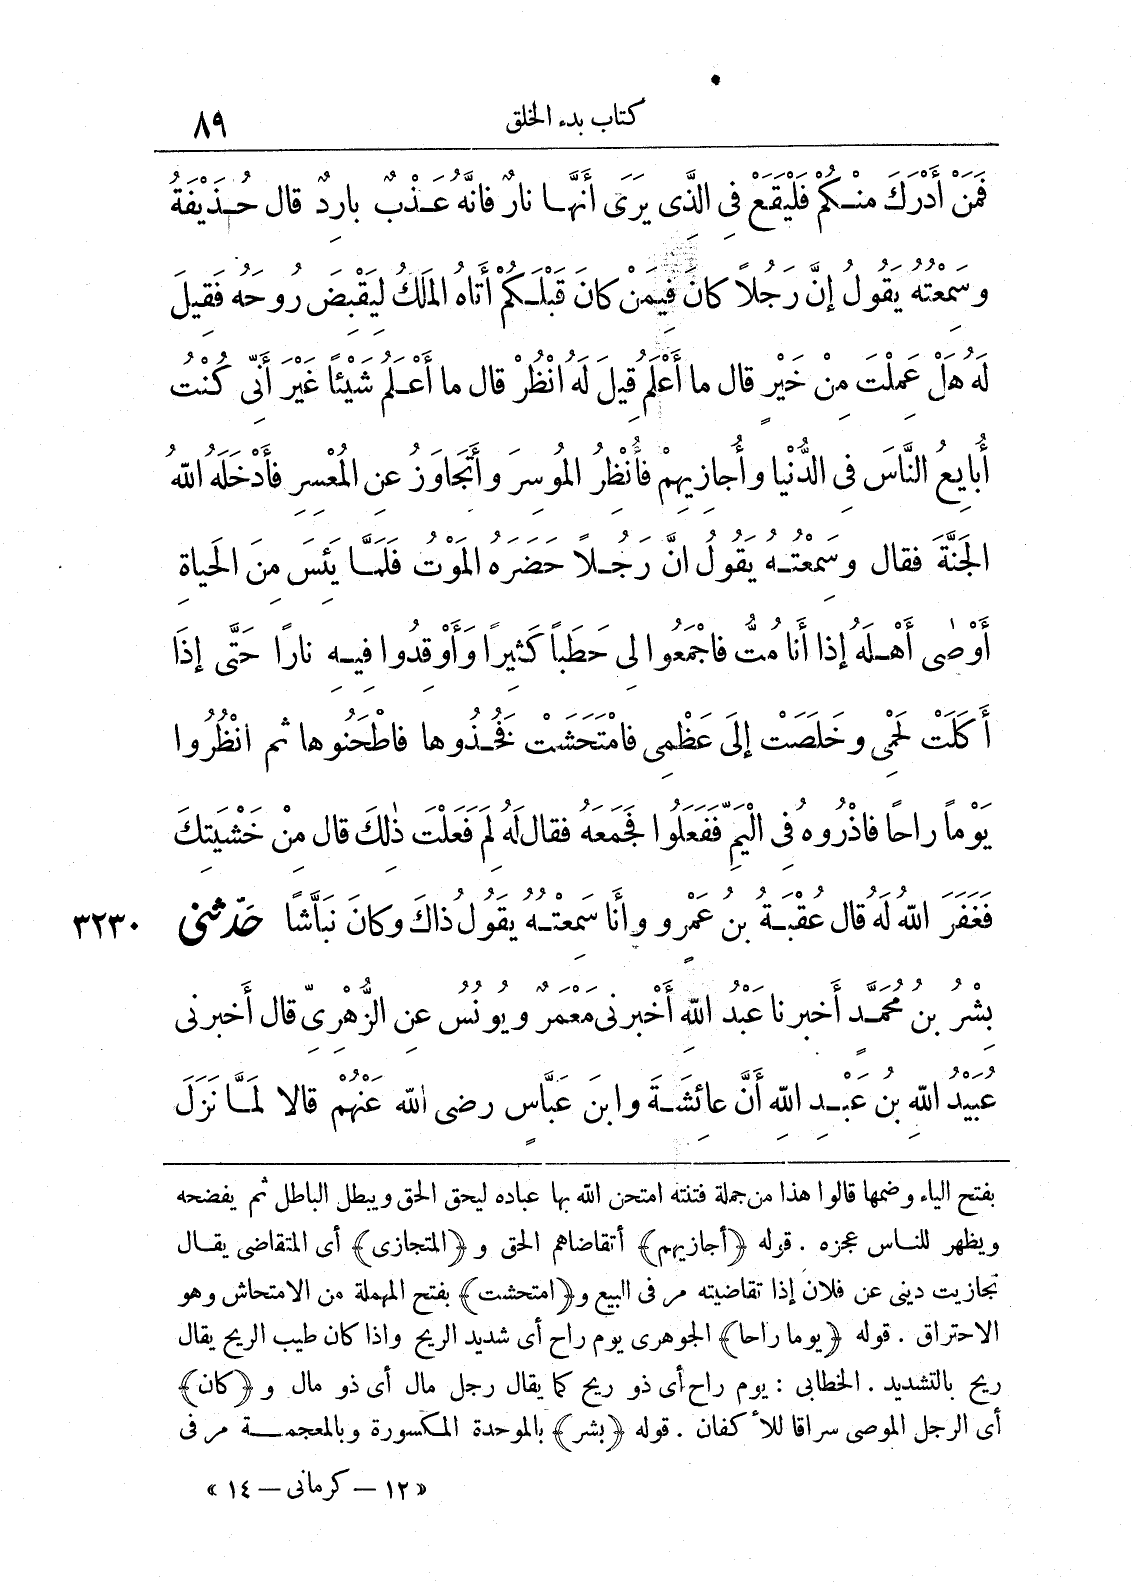 ٨٩
كتاب بدء الخلق
فَمَنْ أَدْرَكَ مِنْكُمْ فَلْيَقَعْ فِى الَّذِى يَرَى أَنَّهَا نَارٌ فَانَّهُ عَذْبٌ بارِدٌ قال حُذَيْفَةُ
وَسَمِعْتُهُ يَقُولُ إنَّ رَجُلاً كانَ فِيمَنْ كانَ قَبْلَكُمْ أَتَاهُ المَلَكُ لِيَقْبِضَ رُوحَهُ فَقِيلَ
لَهُ هَلْ عَمِلْتَ مِنْ خَيْرٍ قال ما أَعْلَمُ قِيلَ لَهُ انْظُرْ قال ما أَعْلَمُ شَيْئًا غَيْرَ أَنِّى كُنْتُ
أُبايِعُ النَّاسَ فِى الدُّنْيا وأُجازِيهِمْ فأُنْظِرُ المُوسِرَ وأَتَجَاوَزُ عنِ المُعْسِرِ فأَدْخَلَهُ اللهُ
الجَنَّةَ فقال وسَمِعْتُهُ يَقُولُ انَّ رَجُلاً حَضَرَهُ المَوْتُ فَلَمَّا يَئِسَ مِنَ الحَياةِ
أَوْصٰى أَهْلَهُ إذا أَنا مُتُّ فاجْمَعُوا لِى حَطَباً كَثِيرًا وَأَوْقِدُوا فِيهِ نارًا حَتَّى إذَا
أَكَلَتْ لَحْمِى وخَلَصَتْ إلَى عَظْمِى فامْتَحَشَتْ فَخُذُوها فاطْحَنُوها ثم انْظُرُوا
يَوْماً راحاً فاذْرُوهُ فِى الْيَمِّ فَفَعَلُوا فَجَمَعَهُ فقال لَهُ لِمَ فَعَلْتَ ذٰلِكَ قال مِنْ خَشْيَتِكَ
فَغَفَرَ اللهُ لَهُ قال عُقْبَةُ بنُ عَمْرٍو وأَنا سَمِعْتُهُ يَقُولُ ذاكَ وكانَ نَبَّاشًا حَدَّثَنِى
٣٢٣٠
بِشْرُ بنُ مُحَمَّدٍ أَخبرنا عَبْدُ اللهِ أَخْبرنى مَعْمَرٌ ويُونُسُ عنِ الزُّهْرِىِّ قال أَخبرنى
عُبَيْدُ اللهِ بنُ عَبْدِ اللهِ أَنَّ عائِشَةَ وابنَ عَبَّاسٍ رضى الله عَنْهُمْ قالا لَمَّا نَزَلَ
بفتح الياء وضمها قالوا هذا من جملة فتنته امتحن الله بها عباده ليحق الحق ويبطل الباطل ثم يفضحه
ويظهر للناس عجزه . قوله ﴿أجازيهم﴾ أتقاضاهم الحق و ﴿المتجازى﴾ أى المتقاضى يقال
تجازيت دينى عن فلان إذا تقاضيته مر فى البيع و﴿امتحشت﴾ بفتح المهملة من الامتحاش وهو
الاحتراق . قوله ﴿يوما راحا﴾ الجوهرى يوم راح أى شديد الريح واذا كان طيب الريح يقال
ريح بالتشديد . الخطابى : يوم راح أى ذو ريح كما يقال رجل مال أى ذو مال و ﴿كان﴾
أى الرجل الموصى سراقا للأ كفان . قوله ﴿بشر﴾ بالموحدة المكسورة وبالمعجمة مر فى
« ١٢ – كرمانى – ١٤ »